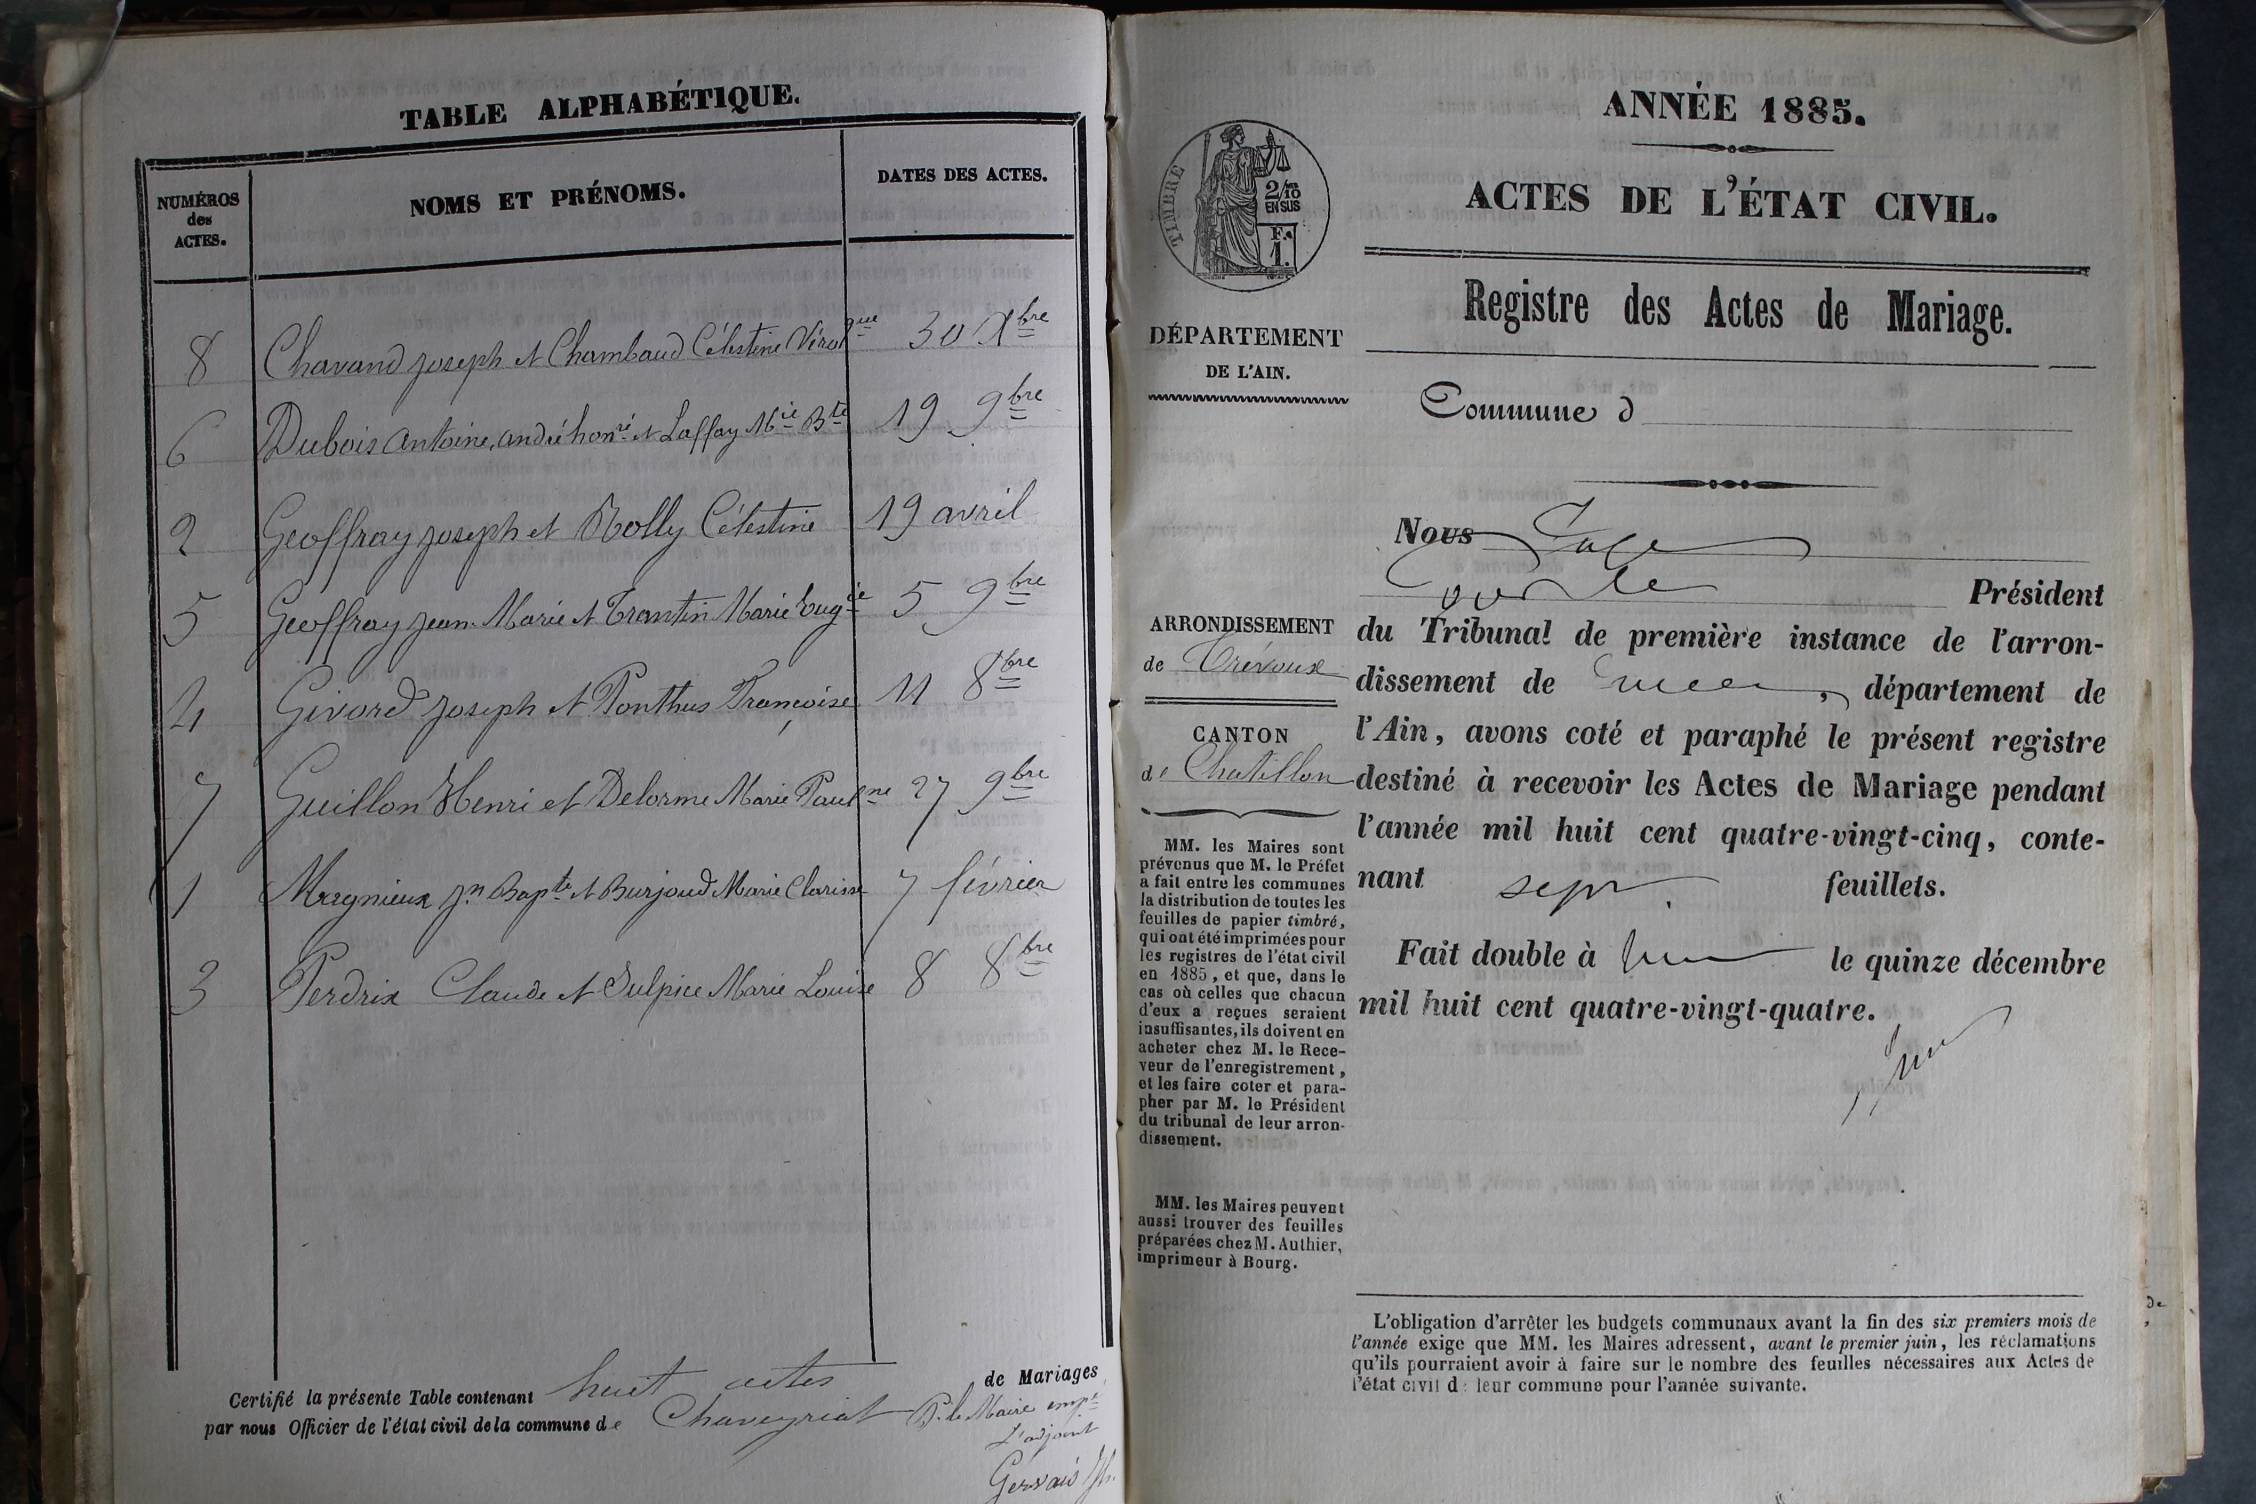 TABLE ALPHABÉTIQUE.
NUMÉROS
des
ACTES.
NOMS ET PRÉNOMS.
DATES DES ACTES.
8 Chavand Joseph et Chambaud Célestine 30 Xbre
6 Dubois Antoine, andré honré et Laffay Mie Bte 19 9bre
2 Geoffray Joseph et Rolly Célestine 19 avril
5 Geoffray Jean-Marie et Trantin Marie Eugie 5 9bre
4 Givord Joseph et Ponthus Françoise 11 8bre
7 Guillon Henri et Delorme Marie Paulne 27 9bre
1 Magnieux Jn Bapte et Burjoud Marie Clarisse 7 février
3 Perdrix Claude et Sulpice Marie Louise 8 8bre
Certifié la présente Table contenant huit actes de Mariages
par nous Officier de l'état civil de la commune de Chaveyriat P. le Maire empé
L'adjoint
Gervais Jh.
ANNÉE 1885.
ACTES DE L'ÉTAT CIVIL.
TIMBRE
2/10
EN SUS
F.
1.
Registre des Actes de Mariage.
DÉPARTEMENT
DE L'AIN.
Commune d
Nous
Président
ARRONDISSEMENT
de Trévoux
CANTON
de Chatillon
du Tribunal de première instance de l'arron-
dissement de , département de
l'Ain, avons coté et paraphé le présent registre
destiné à recevoir les Actes de Mariage pendant
l'année mil huit cent quatre-vingt-cinq, conte-
nant sept feuillets.
Fait double à le quinze décembre
mil huit cent quatre-vingt-quatre.
MM. les Maires sont
prévenus que M. le Préfet
a fait entre les communes
la distribution de toutes les
feuilles de papier timbré,
qui ont été imprimées pour
les registres de l'état civil
en 1885, et que, dans le
cas où celles que chacun
d'eux a reçues seraient
insuffisantes, ils doivent en
acheter chez M. le Rece-
veur de l'enregistrement,
et les faire coter et para-
pher par M. le Président
du tribunal de leur arron-
dissement.
MM. les Maires peuvent
aussi trouver des feuilles
préparées chez M. Authier,
imprimeur à Bourg.
L'obligation d'arrêter les budgets communaux avant la fin des six premiers mois de
l'année exige que MM. les Maires adressent, avant le premier juin, les réclamations
qu'ils pourraient avoir à faire sur le nombre des feuilles nécessaires aux Actes de
l'état civil d leur commune pour l'année suivante.